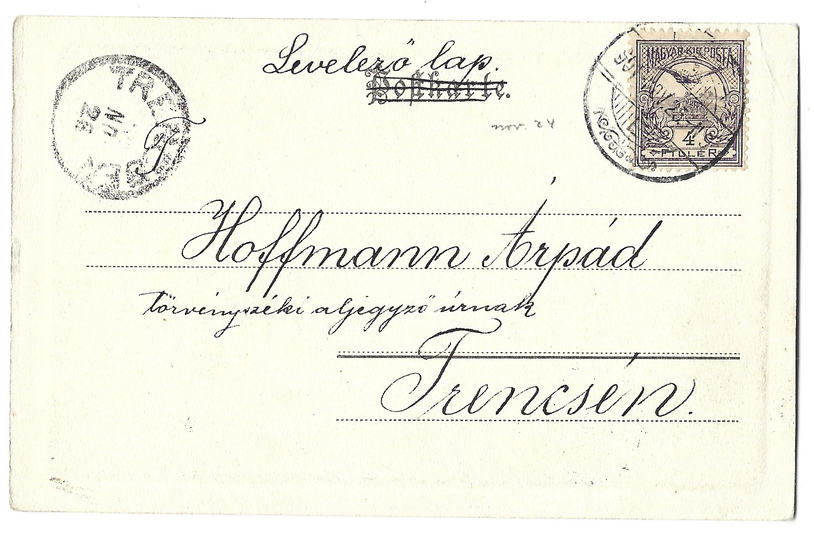 Levelező lap.
Postkarte.
nov. 24
MAGYAR KIR. POSTA
4
FILLÉR
TRE
Hoffmann Árpád
törvényszéki aljegyző úrnak
Trencsén.